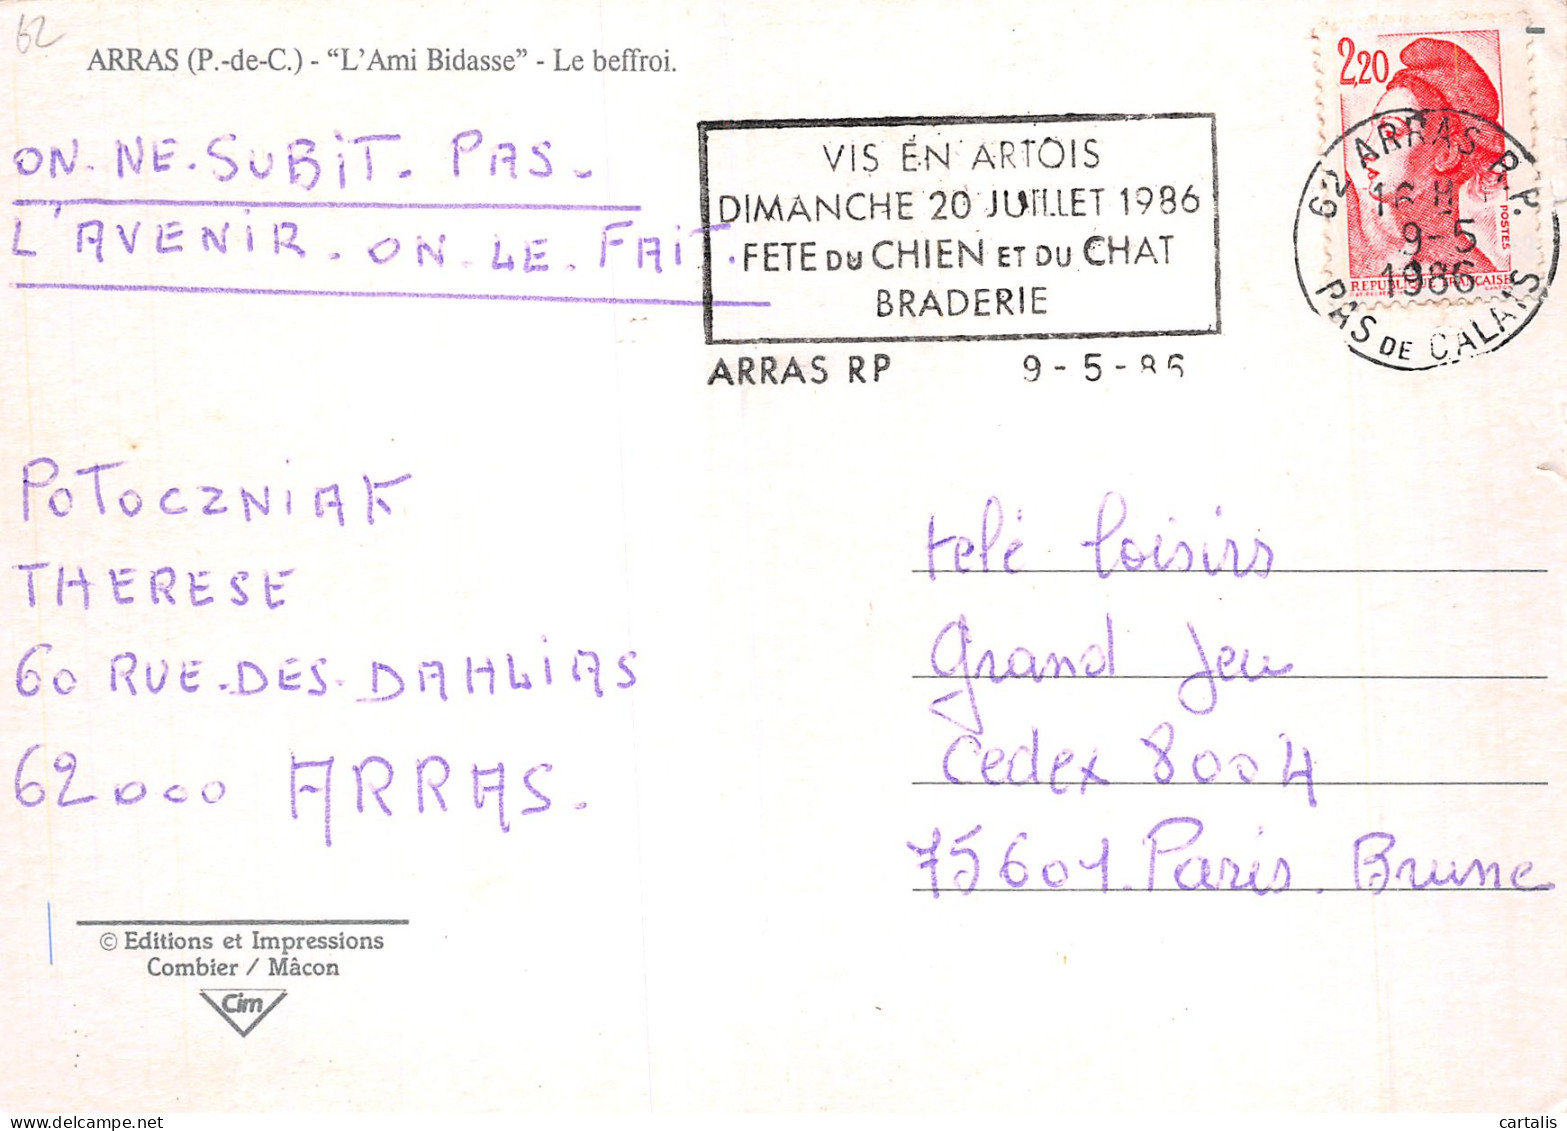 62
ARRAS (P.-de-C.) - “L’Ami Bidasse” - Le beffroi.
2,20
POSTES
REPUBLIQUE FRANÇAISE
62 ARRAS R.P.
16 H
9-5
1986
PAS DE CALAIS
VIS EN ARTOIS
DIMANCHE 20 JUILLET 1986
FETE DU CHIEN ET DU CHAT
BRADERIE
ARRAS RP 9-5-86
ON. NE. SUBIT. PAS.
L'AVENIR. ON. LE. FAIT.
POTOCZNIAK
THERESE
60 RUE. DES. DAHLIAS
62000 ARRAS.
telé loisirs
Grand Jeu
Cedex 8004
75601. Paris. Brune
© Editions et Impressions
Combier / Mâcon
Cim
cartalis